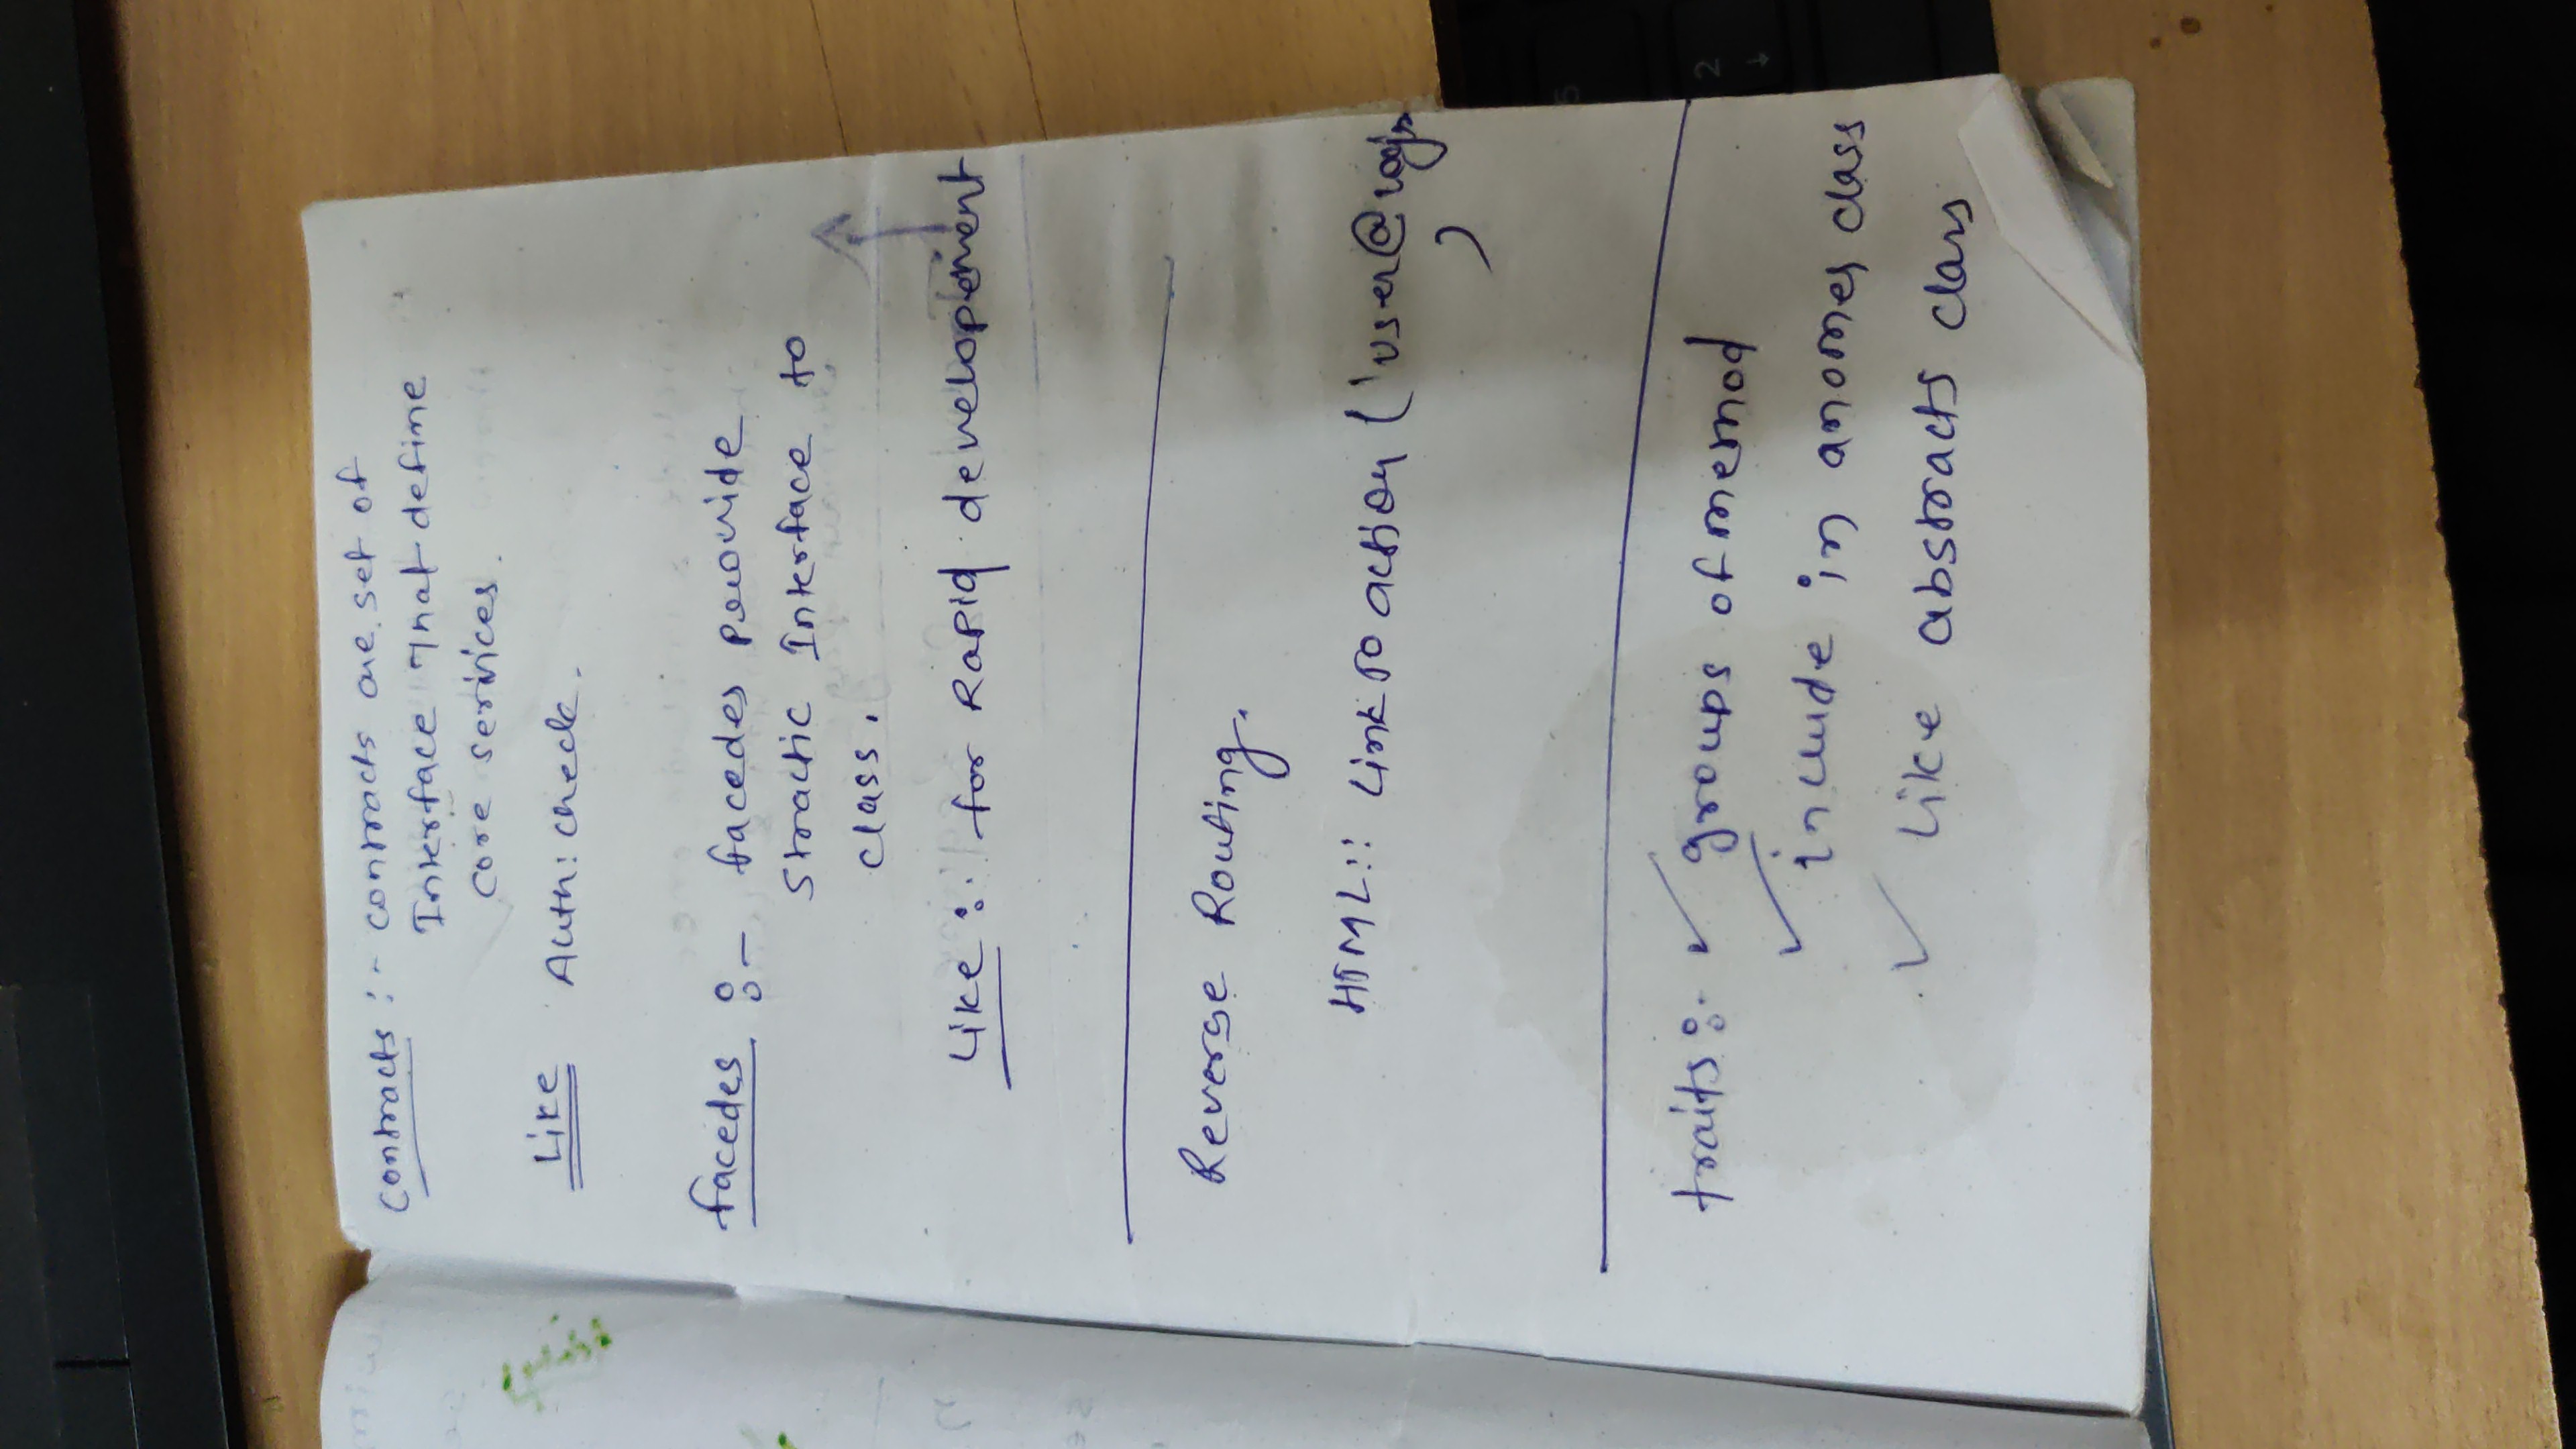 contracts :- contracts are set of
Interface That define
core serivices.
Like Auth: check.
facedes :- facedes peovide
Stractic Interface to
class.
Like :. for Rapid developement
Reverge Routing.
HTML:: Link to action ('user@login
)
traits :- ✓ groups of method
✓ include in another class
✓ Like abstracts class